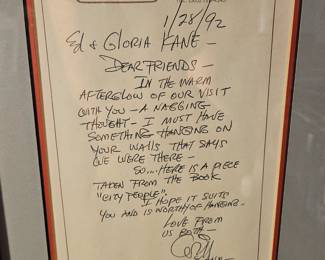 1/28/92
Ed & GLORIA KANE —
DEAR FRIENDS —
IN THE WARM
AFTERGLOW OF OUR VISIT
WITH YOU — A NAGGING
THOUGHT — I MUST HAVE
SOMETHING HANGING ON
YOUR WALLS THAT SAYS
WE WERE THERE —
SO... HERE IS A PIECE
TAKEN FROM THE BOOK
"CITY PEOPLE".
I HOPE IT SUITS
YOU AND IS WORTHY OF HANGING —
LOVE FROM
US BOTH —